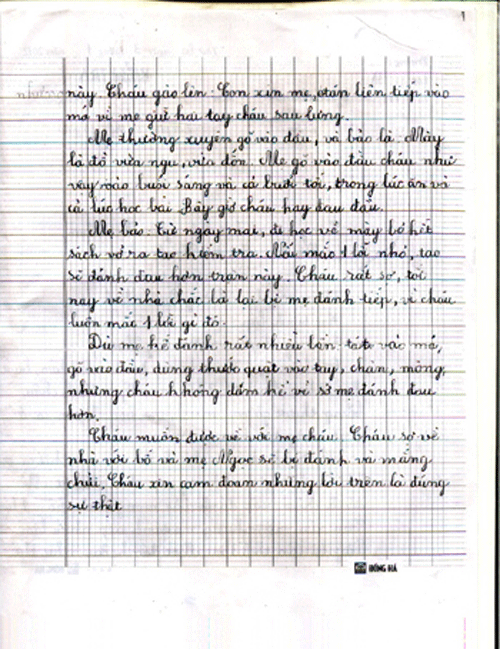 1
này. Cháu gào lên. Con xin mẹ, tán liên tiếp vào
má vì mẹ giữ hai tay cháu sau lưng.
Mẹ thường xuyên gõ vào đầu, và bảo là. Mày
là đồ vừa ngu, vừa đốn. Mẹ gõ vào đầu cháu như
vậy vào buổi sáng và cả buổi tối, trong lúc ăn và
cả lúc học bài. Bây giờ cháu hay đau đầu.
Mẹ bảo. Từ ngày mai, đi học về mày bỏ hết
sách vở ra tao kiểm tra. Nếu mắc 1 lỗi nhỏ, tao
sẽ đánh đau hơn trận này. Cháu rất sợ, tối
nay về nhà chắc là lại bị mẹ đánh tiếp, vì cháu
luôn mắc 1 lỗi gì đó.
Dù mẹ kế đánh rất nhiều lần tát vào má,
gõ vào đầu, dùng thước quật vào tay, chân, mông,
nhưng cháu không dám kể vì sợ mẹ đánh đau
hơn.
Cháu muốn được về với mẹ cháu. Cháu sợ về
nhà với bố và mẹ Ngọc sẽ bị đánh và mắng
chửi. Cháu xin cam đoan những lời trên là đúng
sự thật
HỒNG HÀ